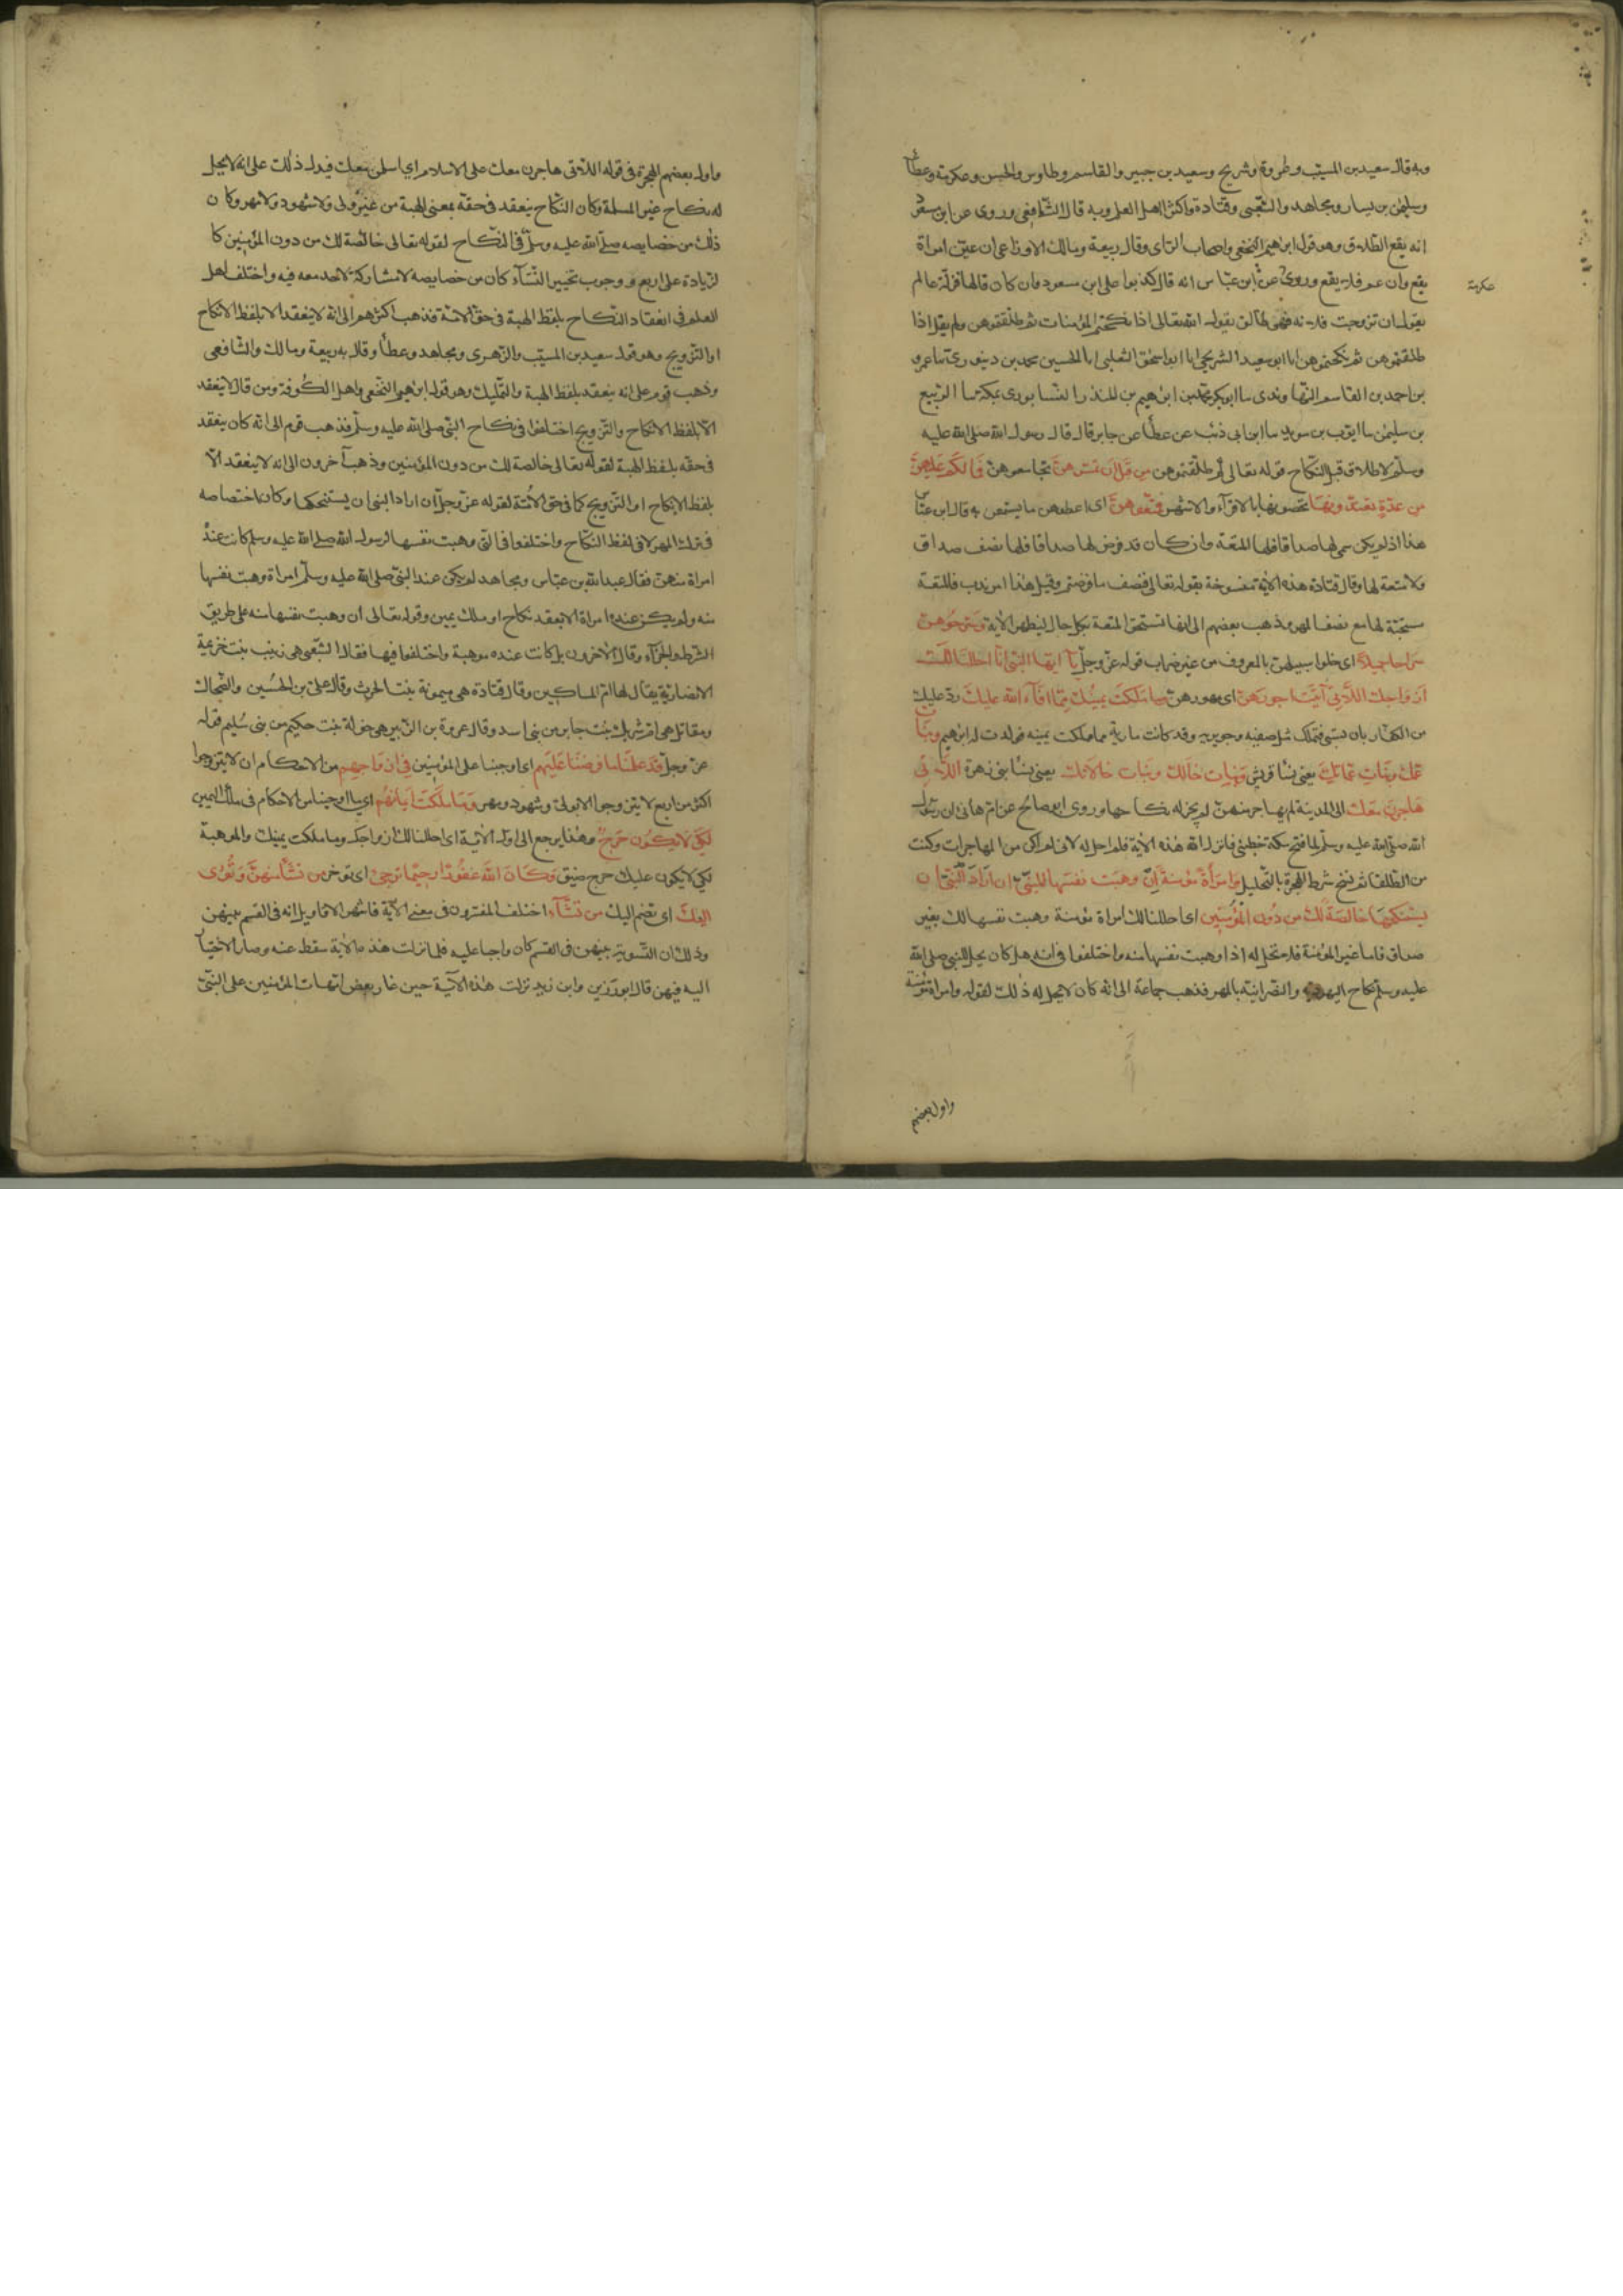 وبه قال سعيد بن المسيّب وعروة وشريح وسعيد بن جبير والقاسم وطاوس والحسن وعكرمة وعطأ
وسليمٰن بن يسار ومجاهد والشعبى وقتادة واكثر اهل العلم وبه قال الشافعى وروى عن ابن مسعود
انه يقع الطلاق وهو قول ابرٰهيم النخعى واصحاب الراى وقال ربيعة ومالك والاوزاعى ان عيّن امراة
يقع وان عم فلا يقع وروى عن ابن عبّاس انه قال كذبوا على ابن مسعود ان كان قالها فزلّة عالم
عكرمة
يقول ان تزوجت فلانة فهى طالق يقول الله تعالى اذا نكحتم المؤمنات ثم طلقتموهن ولم يقل اذا
طلقتموهن ثم نكحتموهن ابا ابو سعيد الشريحى ابا ابو اسحٰق الثعلبى ابا الحسين محمد بن دينورى ثنا عمر
بن احمد بن القاسم النهاوندى سا ابو بكر محمّد بن ابرٰهيم بن المنذر النيسابورى بمكة سا الربيع
بن سليمٰن سا ايوب بن سويد سا ابن ابى ذئب عن عطأ عن جابر قال قال رسول الله صلى الله عليه
وسلّم لا طلاق قبل النكاح قوله تعالى ثم طلّقتموهن من قبل ان تمسّوهنّ تجامعوهنّ فما لكم عليهنّ
من عدّة تعتدّونها تحصونها بالاقرآء والاشهر فمتّعوهنّ اى اعطوهن ما يستمتعن به قال ابن عبّاس
هذا اذا لم يكن سمى لها صداقا فلها المتعة وان كان قد فرض لها صداقا فلها نصف صداق
ولا متعة لها وقال قتادة هذه الاٰية منسوخة بقوله تعالى فنصف ما فرضتم وقيل هذا امر ندب فالمتعة
مستحبّة لها مع نصف المهر وذهب بعضهم الى انها تستحق المتعة بكل حال لظهر الاٰية وسرّحوهنّ
سراحا جميلا اى خلوا سبيلهنّ بالمعروف من غير ضرار قوله عزّ وجلّ يآ ايّها النبىّ انّا احللنا لك
ازواجك اللّاتى آتيت اجورهنّ اى مهورهنّ وما ملكت يمينك ممّا افآء الله عليك ردّ عليك
من الكفّار بان تسبى فتملك مثل صفيّه وجويريه وقد كانت مارية مما ملكت يمينه فولدت له ابرٰهيم وبنات
عمّك وبنات عمّاتك يعنى نسا قريش وبنات خالك وبنات خالاتك يعنى نسا بنى زهرة اللّاتى
هاجرن معك الى المدينة لم يهاجر منهنّ لم يجز له نكاحها وروى ابو صالح عن ام هانئ ان رسول
الله صلى الله عليه وسلّم لما فتح مكة خطبنى فانزل الله هذه الاٰية فلم احل له لانى لم اكن من المهاجرات وكنت
من الطلقا ثم نسخ شرط الهجرة بالتحليل وامرأة مؤمنة إن وهبت نفسها للنبىّ ان اراد النّبىّ ان
يستنكحها خالصة لك من دون المؤمنين اى احللنا لك امراة مؤمنة وهبت نفسها لك بغير
صداق فاما غير المؤمنة فلا تحل له اذا وهبت نفسها منه واختلفوا فى انه هل كان يحل للنبى صلى الله
عليه وسلم نكاح اليهودية والنصرانية بالمهر فذهب جماعة الى انه كان لا يحل له ذلك لقوله وامراة مؤمنة
واول بعضهم
واول بعضهم الهجرة فى قوله اللّاتى هاجرن معك على الاسلام اي اسلمن معك فيدل ذلك على انه لا يحل
له نكاح غير المسلمة وكان النكاح ينعقد فى حقه بمعنى الهبة من غير ولى ولا شهود ولا مهر وكان
ذٰلك من خصايصه صلى الله عليه وسلّم فى النكاح لقوله تعالى خالصة لك من دون المؤمنين كا
لزيادة على اربع ووجوب تخيير النسآء كان من خصايصه لا مشاركة لاحد معه فيه واختلف اهل
العلم فى انعقاد النكاح بلفظ الهبة فى حق الامّة فذهب اكثرهم الى انه لا ينعقد الا بلفظ الانكاح
او التزويج وهو قول سعيد بن المسيّب والزهرى ومجاهد وعطأ وقال به ربيعة ومالك والشافعى
وذهب قوم على انه ينعقد بلفظ الهبة والتمليك وهو قول ابرٰهيم النخعى واهل الكوفة ومن قال لا ينعقد
الّا بلفظ الانكاح والتزويج اختلفوا فى نكاح النبى صلى الله عليه وسلّم فذهب قوم الى انه كان ينعقد
فى حقّه بلفظ الهبة لقوله تعالى خالصة لك من دون المؤمنين وذهب آخرون الى انه لا ينعقد الّا
بلفظ الانكاح او التزويج كما فى حق الامّة لقوله عزّ وجلّ ان اراد النبى ان يستنكحها وكان اختصاصه
فى ترك المهر لا فى لفظ النكاح واختلفوا فى التى وهبت نفسها لرسول الله صلى الله عليه وسلم كانت عنده
امراة منهنّ فقال عبد الله بن عبّاس ومجاهد لم يكن عند النبىّ صلى الله عليه وسلّم امراة وهبت نفسها
منه ولم يكن عنده امراة الا بعقد نكاح او ملك يمين وقوله تعالى ان وهبت نفسها منه على طريق
الشرط والجزآء وقال الاٰخرون بل كانت عنده موهبة واختلفوا فيها فقال الشعبى هى زينب بنت خزيمة
الانصارية يقال لها ام المساكين وقال قتادة هى ميمونة بنت الحرث وقال علىّ بن الحسين والضحاك
ومقاتل هى ام شريك بنت جابر من بنى اسد وقال عروة بن الزبير هى خولة بنت حكيم من بنى سليم قوله
عزّ وجلّ قد علمنا ما فرضنا عليهم اى اوجبنا على المؤمنين فى ازواجهم من الاحكام ان لا يتزوجوا
اكثر من اربع لا يتزوجوا الا بولى وشهود ومهر وما ملكت ايمانهم اى ما اوجبنا من الاحكام فى ملك اليمين
لكى لا يكون حرج وهذا يرجع الى اول الاٰية اى احللنا لك ازواجك وما ملكت يمينك والموهبة
لكى لا يكون عليك حرج ضيق وكان الله غفورا رحيما ترجى اى تؤخر من تشآء منهنّ وتؤوى
اليك اى تضم اليك من تشآء اختلف المفسرون فى معنى الاٰية فاشهر الاقاويل انه فى القسم بينهن
وذلك ان التسوية بينهن فى القسم كان واجبا عليه فلما نزلت هذه الاٰية سقط عنه وصار الاختيآر
اليه فيهن قال ابو رزين وابن زيد نزلت هذه الآية حين غار بعض امّهات المؤمنين على النبىّ